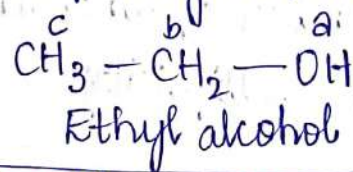 c b a
CH₃ — CH₂ — OH
Ethyl alcohol